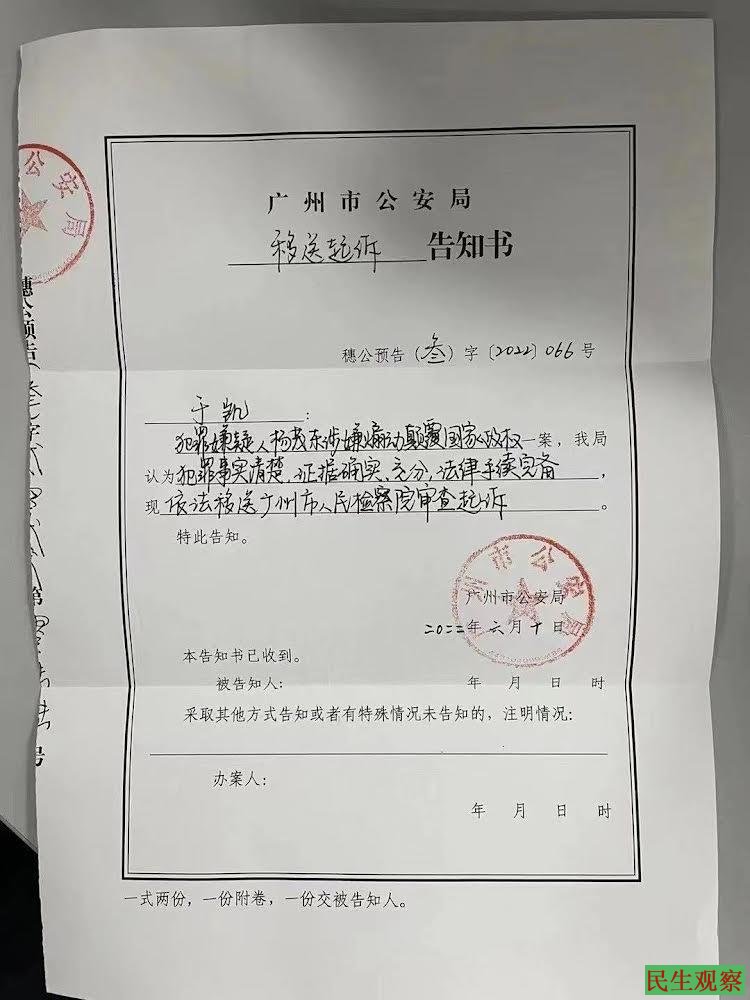 广州市公安局
移送起诉告知书
穗公预告（叁）字〔2022〕066号
于凯：
犯罪嫌疑人杨茂东涉嫌煽动颠覆国家政权一案，我局
认为犯罪事实清楚，证据确实、充分，法律手续完备，
现依法移送广州市人民检察院审查起诉。
特此告知。
广州市公安局
广州市公安局
2022年六月十日
本告知书已收到。
被告知人： 年 月 日 时
采取其他方式告知或者有特殊情况未告知的，注明情况：
办案人：
年 月 日 时
一式两份，一份附卷，一份交被告知人。
公安局
民生观察